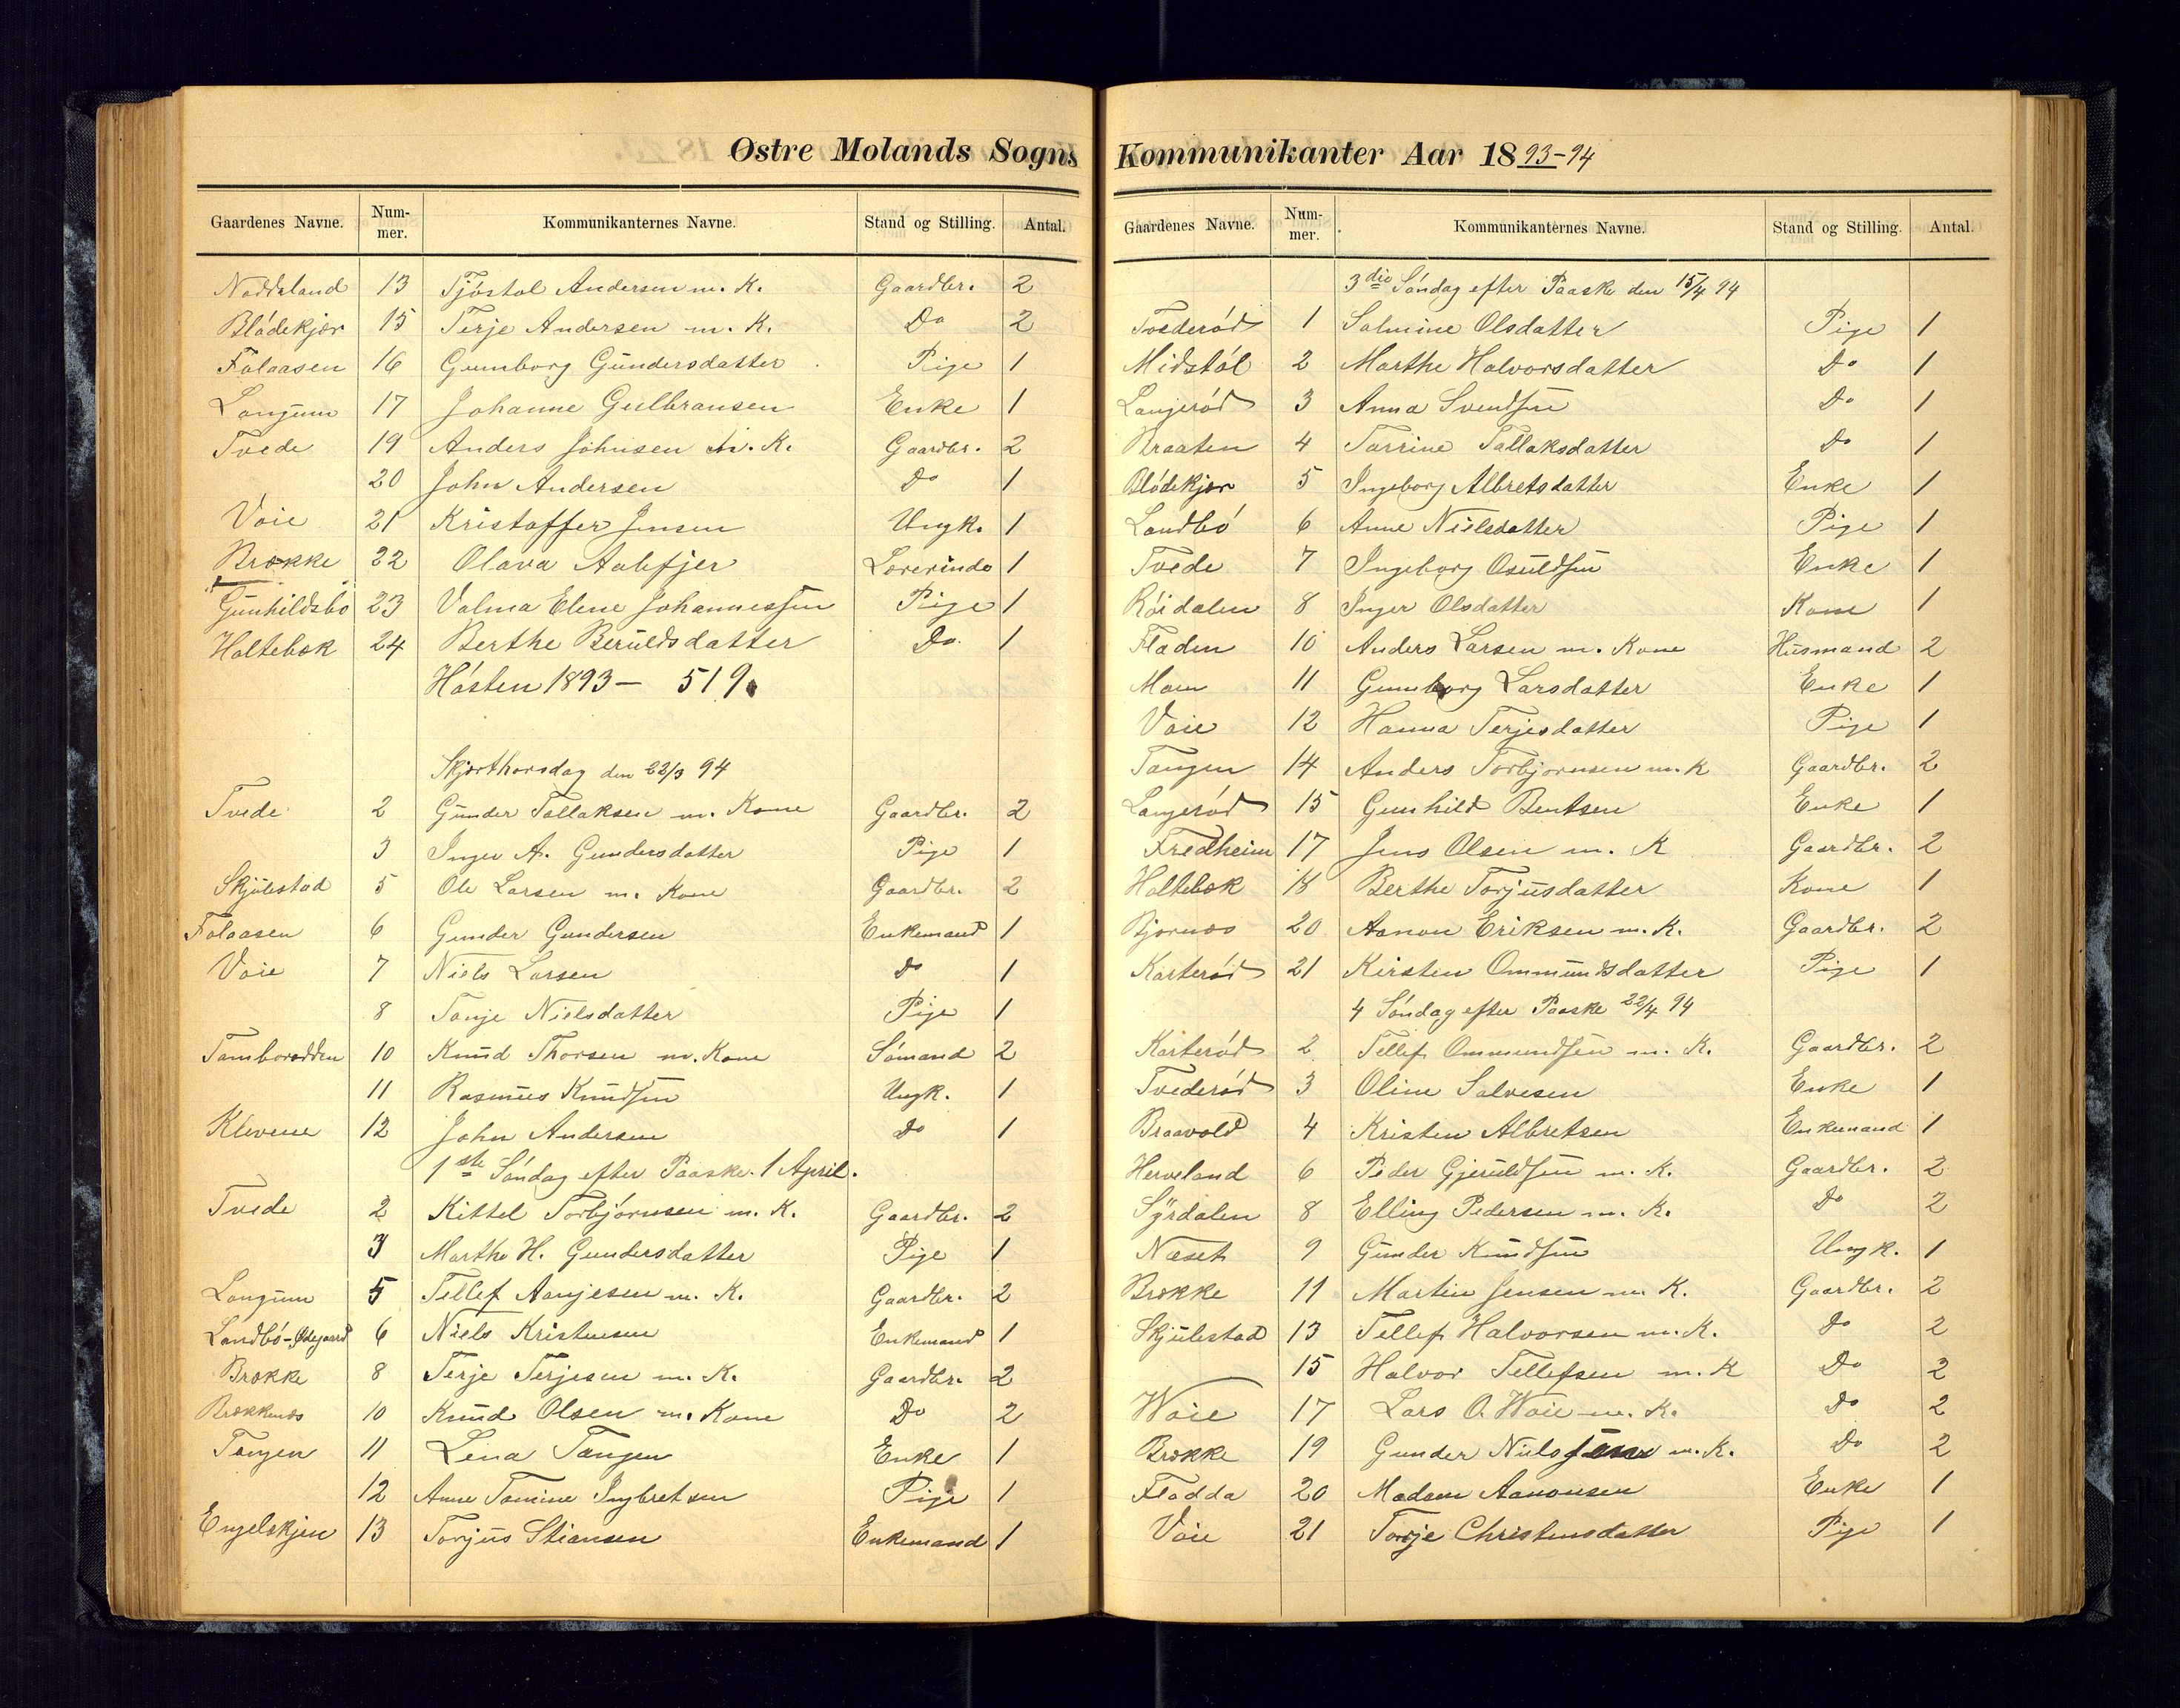 Østre Molands Sogns
Gaardenes Navne. Num-mer. Kommunikanternes Navne. Stand og Stilling. Antal.
Noddeland 13 Tjöstol Andersen m. K. Gaardbr. 2
Blödekjær 15 Terje Andersen m. K. Do 2
Folaasen 16 Gunborg Gundersdatter Pige 1
Langum 17 Johanne Gulbransen Enke 1
Tvede 19 Anders Johnsen m. K. Gaardbr. 2
20 John Andersen Do 1
Voie 21 Kristoffer Jensen Ungk. 1
Brække 22 Olava Aalefjer Lærerinde 1
Gunhildsbo 23 Valma Elene Johannessen Pige 1
Holtebæk 24 Berthe Beruldsdatter Do 1
Hösten 1893 – 519.
Skjærthorsdag den 22/3 94
Tvede 2 Gunder Tallaksen m. Kone Gaardbr. 2
3 Inger A. Gundersdatter Pige 1
Skjulestad 5 Ole Larsen m. Kone Gaardbr. 2
Folaasen 6 Gunder Gundersen Enkemand 1
Voie 7 Niels Larsen Do 1
8 Tonje Nielsdatter Pige 1
Tamborodden 10 Knud Thorsen m. Kone Sömand 2
11 Rasmus Knudsen Ungk. 1
Klevene 12 John Andersen Do 1
1ste Söndag efter Paaske. 1 April.
Tvede 2 Kittel Torbjörnsen m. K. Gaardbr. 2
3 Marthe H. Gundersdatter Pige 1
Langum 5 Tellef Aanjesen m. K. Gaardbr. 2
Landbö-Ødegaard 6 Niels Kristensen Enkemand 1
Brække 8 Terje Terjesen m. K. Gaardbr. 2
Brækkenæs 10 Knud Olsen m. Kone Do 2
Tangen 11 Lena Tangen Enke 1
12 Anne Tomine Ingbretsen Pige 1
Engelskjen 13 Torjus Stiansen Enkemand 1
Kommunikanter Aar 1893-94
Gaardenes Navne. Num-mer. Kommunikanternes Navne. Stand og Stilling. Antal.
3die Söndag efter Paaske den 15/4 94
Tvederöd 1 Salmine Olsdatter Pige 1
Midstöl 2 Marthe Halvorsdatter Do 1
Langeröd 3 Anna Svendsen Do 1
Braaten 4 Tarrine Tallaksdatter Do 1
Blödekjær 5 Ingeborg Albretsdatter Enke 1
Landbö 6 Anne Nielsdatter Pige 1
Tvede 7 Ingeborg Osuldsen Enke 1
Röidalen 8 Inger Olsdatter Kone 1
Fladen 10 Anders Larsen m. Kone Husmand 2
Moen 11 Gunborg Larsdatter Enke 1
Voie 12 Hanna Terjesdatter Pige 1
Tangen 14 Anders Torbjornsen m. K Gaardbr. 2
Langeröd 15 Gunhild Bentsen Enke 1
Fredheim 17 Jens Olsen m. K Gaardbr. 2
Holtebæk 18 Berthe Torjusdatter Kone 1
Bjornæs 20 Aanon Eriksen m. K. Gaardbr. 2
Karteröd 21 Kirsten Ommundsdatter Pige 1
4 Söndag efter Paaske 22/4 94
Karteröd 2 Tellef Ommundsen m. K. Gaardbr. 2
Tvederöd 3 Oline Salvesen Enke 1
Braavold 4 Kristen Albretsen Enkemand 1
Herveland 6 Peder Gjeruldsen m. K. Gaardbr. 2
Syrdalen 8 Elling Pedersen m. K. Do 2
Næset 9 Gunder Knudsen Ungk. 1
Brække 11 Martin Jensen m. K. Gaardbr. 2
Skjulestad 13 Tellef Halvorsen m. K. Do 2
15 Halvor Tellefsen m. K Do 2
Woie 17 Lars O. Woie m. K. Do 2
Brække 19 Gunder Nielssen m. K. Do 2
Flodda 20 Madam Aanonsen Enke 1
Voie 21 Torje Christensdatter Pige 1